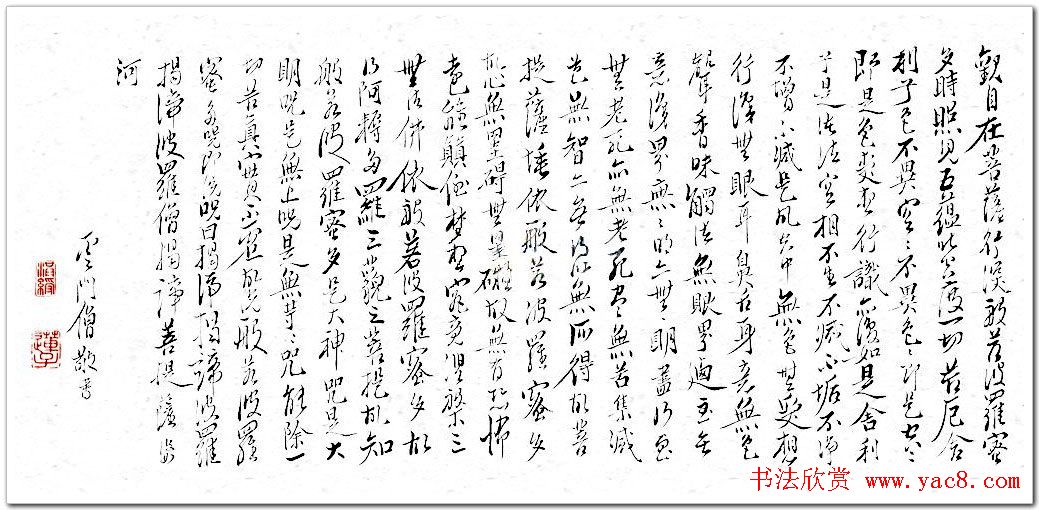 觀自在菩薩行深般若波羅蜜
多時照見五蘊皆空度一切苦厄舍
利子色不異空〻不異色〻即是空〻
即是色受想行識亦復如是舍利
子是諸法空相不生不滅不垢不淨
不增不減是故空中無色無受想
行識無眼耳鼻舌身意無色
聲香味觸法無眼界迺至無
意識界無〻明亦無〻明盡乃至
無老死亦無老死盡無苦集滅
道無智亦無得以無所得故菩
提薩埵依般若波羅蜜多
故心無罣礙無罣礙故無有恐怖
遠離顛倒夢想究竟涅槃三
世諸佛依般若波羅蜜多故
得阿耨多羅三藐三菩提故知
般若波羅蜜多是大神咒是大
明咒是無上咒是無等〻咒能除一
切苦真實不虛故說般若波羅
蜜多咒即說咒曰揭諦揭諦波羅
揭諦波羅僧揭諦菩提薩婆
訶
雲門僧敬書
书法欣赏 www.yac8.com